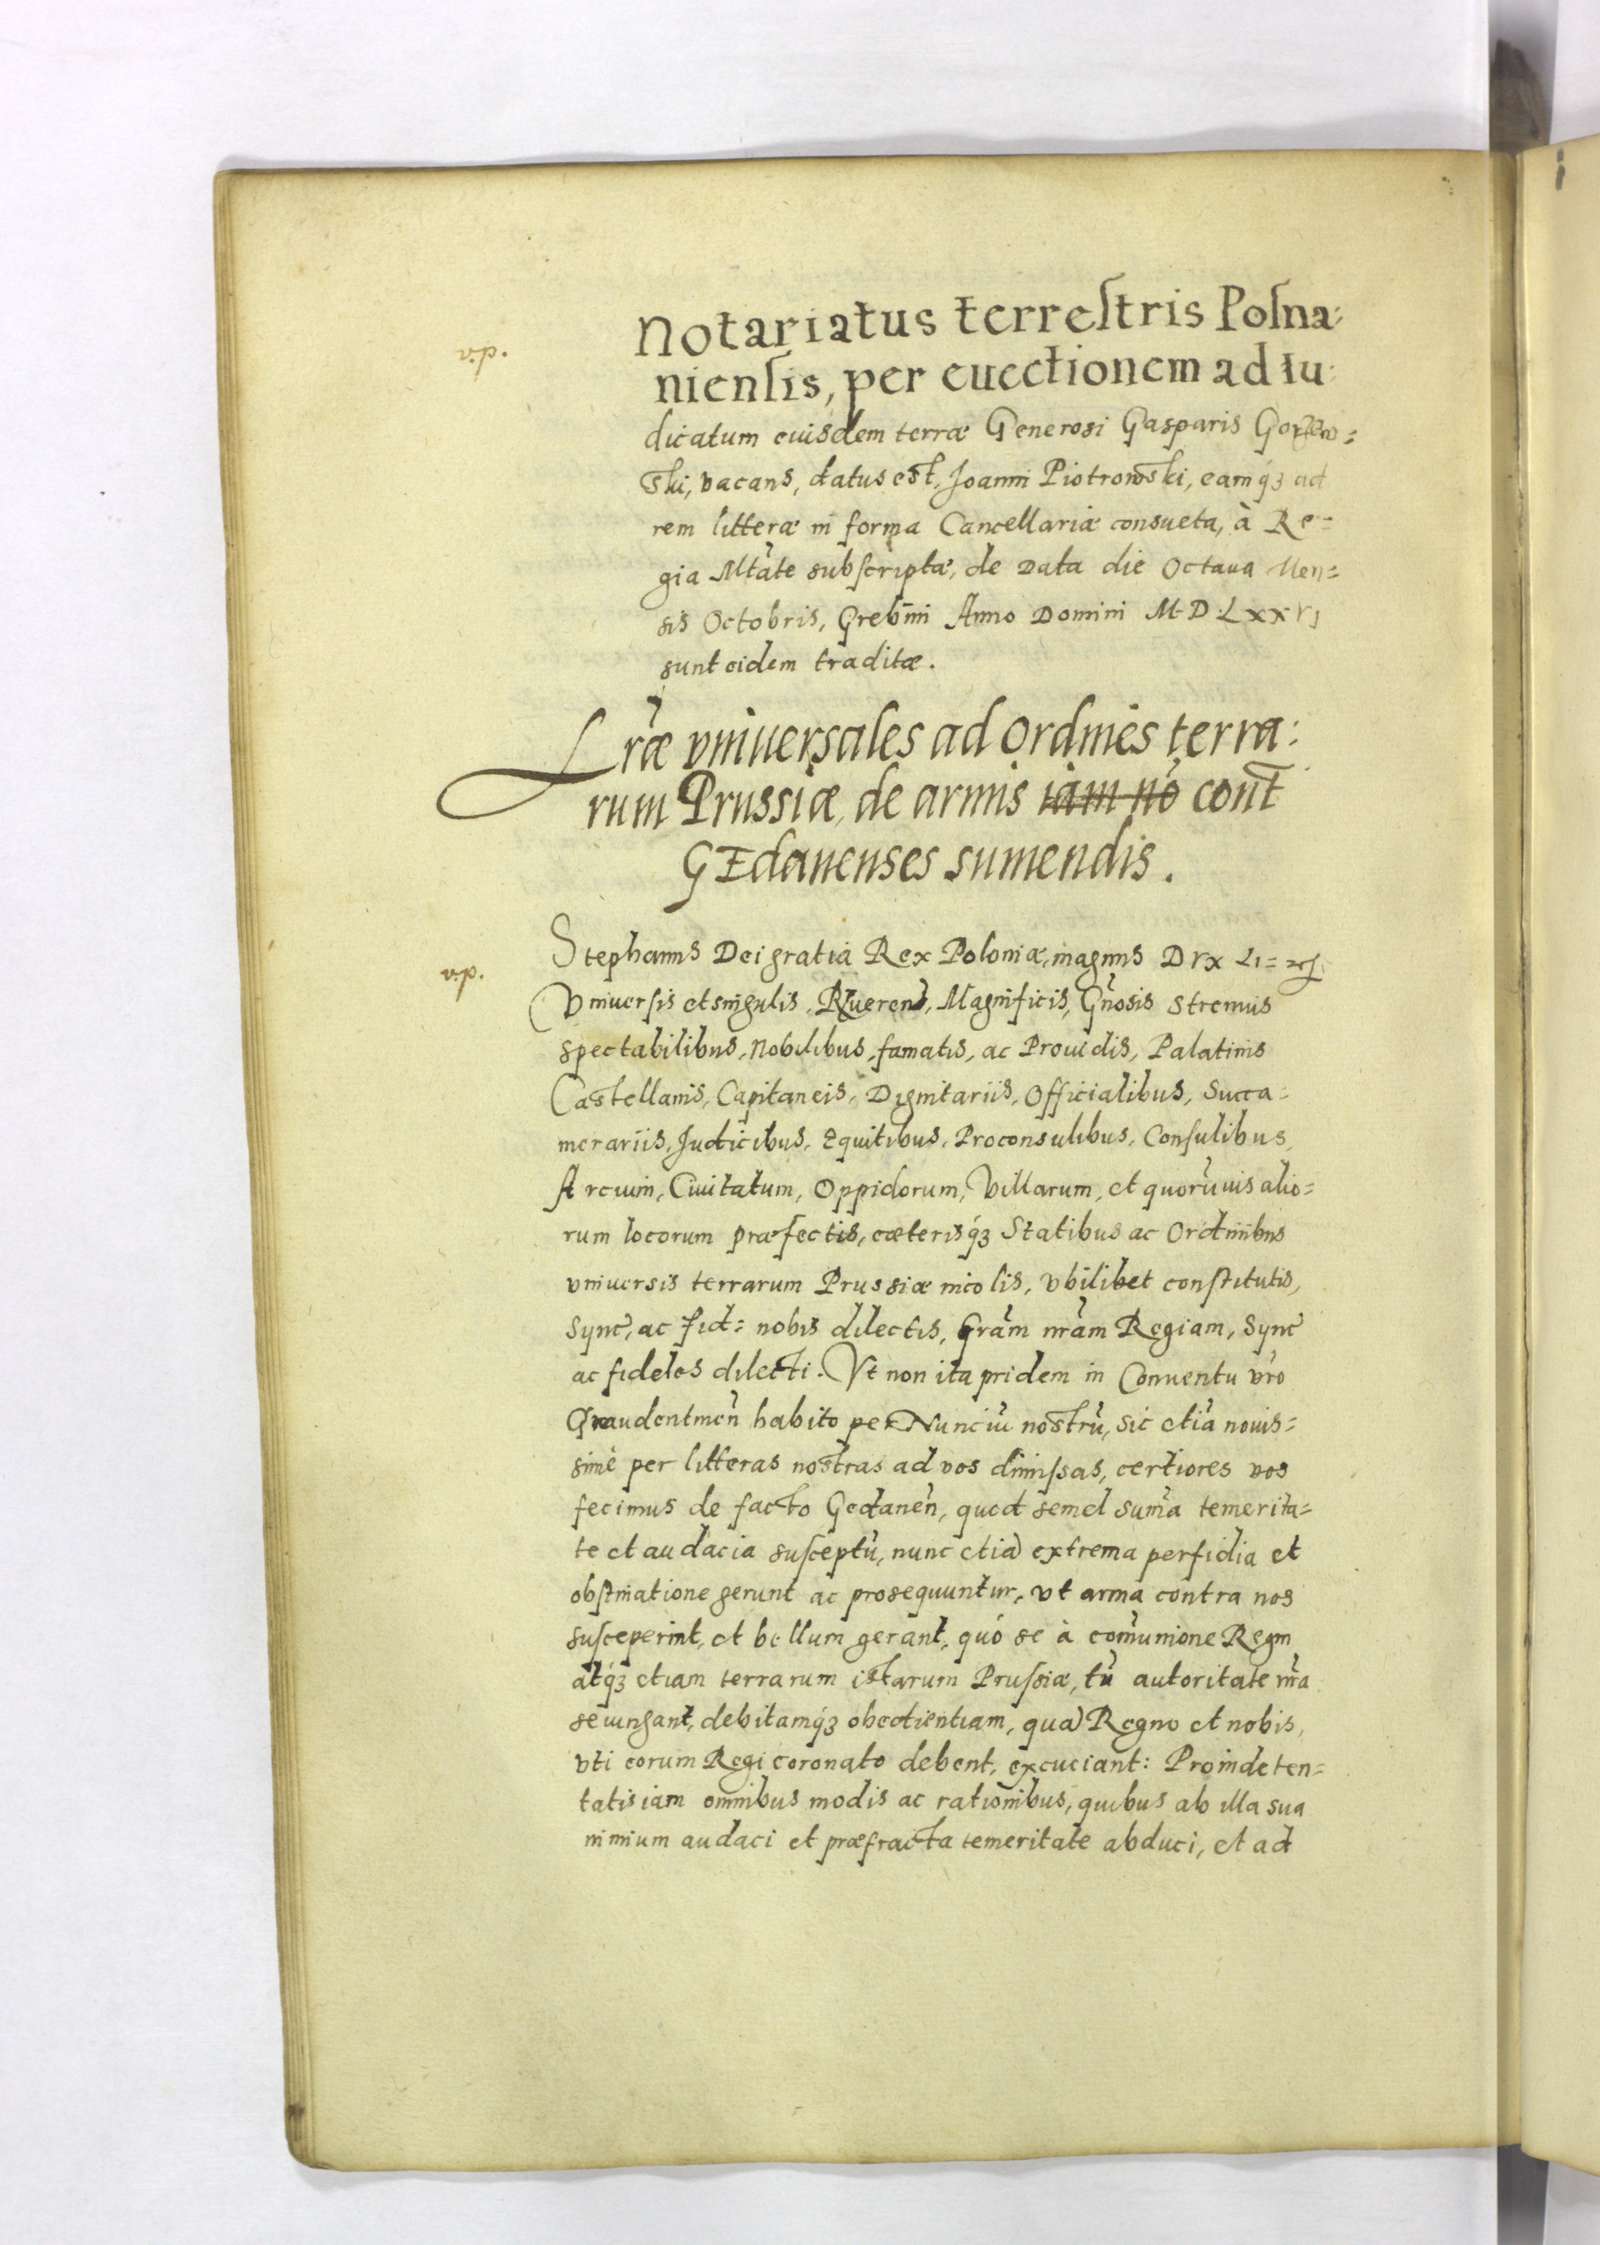 v.p.
Notariatus terrestris Posna:
niensis, per euectionem ad Iu:
dicatum eiusdem terræ Generosi Gasparis
ski, vacans, datus est, Joanni Piotrowski, eamq́ꝫ ad
rem litteræ in forma Cancellariæ consueta, à Re=
gia Mtate subscriptæ, de Data die Octaua Men=
sis Octobris, Grebini Anno Domini M D LXXVI
sunt eidem traditæ.
Lræ vniuersales ad Ordines terra:
rum Prussiæ, de armis iam nó cont
GEdanenses sumendis.
v.p.
Stephanus Dei gratia Rex Poloniæ, magnus Dux Li=
Vniuersis et singulis, Rueren, Magnificis, Gnosis Strenuis
Spectabilibus, Nobilibus, famatis, ac Prouidis, Palatinis
Castellanis, Capitaneis, Dignitariis, Officialibus, Succa=
merariis, Judicibus, Equitibus, Proconsulibus, Consulibus,
Arcium, Ciuitatum, Oppidorum, Villarum, et quorũuis alio=
rum locorum præfectis, cæterisq́ꝫ Statibus ac Ordinibus
vniuersis terrarum Prussiæ incolis, vbilibet constitutis,
Sync, ac fid= nobis dilectis, Grãm nrãm Regiam, Sync
ac fideles dilecti. Vt non ita pridem in Conuentu vro
Graudentinen habito per Nunciũ nostrũ, sic etiã nouis=
simè per litteras nostras ad vos dimissas, certiores vos
fecimus de facto Gedanen, quod semel sum̃a temerita=
te et audacia susceptũ, nunc etiã extrema perfidia et
obstinatione gerunt ac prosequuntur, vt arma contra nos
susceperint, et bellum gerant, quó se à com̃unione Regni
atq́ꝫ etiam terrarum istarum Prussiæ, tũ autoritate nr̃a
seiungant, debitamq́ꝫ obedientiam, quã Regno et nobis,
vti eorum Regi coronato debent, excuciant: Proinde ten=
tatis iam omnibus modis ac rationibus, quibus ab illa sua
nimium audaci et præfracta temeritate abduci, et ad